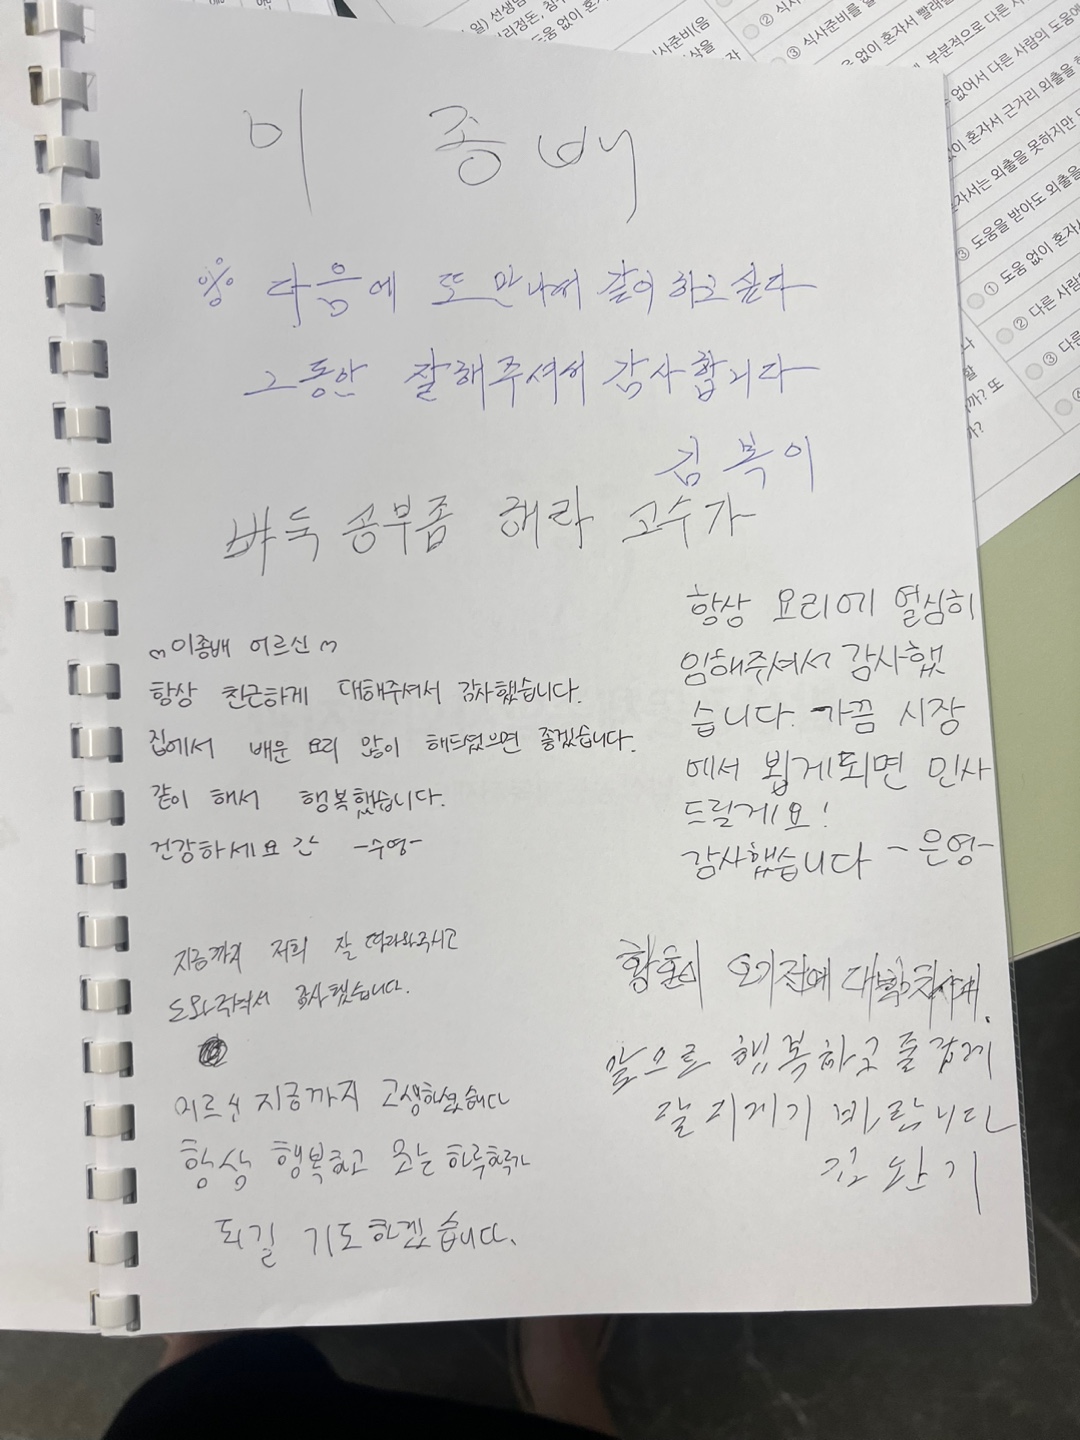 이 종 배
다음에 또 만나서 같이 하고 싶다
그동안 잘해주셔서 감사합니다
김 복 이
바둑 공부좀 해라 고수가
이종배 어르신
항상 친근하게 대해주셔서 감사했습니다.
집에서 배운 요리 많이 해드셨으면 좋겠습니다.
같이 해서 행복했습니다.
건강하세요 -수영-
항상 요리에 열심히
임해주셔서 감사했
습니다. 가끔 시장
에서 뵙게되면 인사
드릴게요!
감사했습니다 -은영-
지금까지 저희 잘 따라와주시고
도와주셔서 감사했습니다.
어르신 지금까지 고생하셨습니다
항상 행복하고 웃는 하루하루가
되길 기도하겠습니다.
앞으로 행복하고 즐겁게
잘 지게기 바람니다
김 완 기
식사준비를
없이 혼자서 빨래를
부분적으로 다른
없어서 다른 사람의 도움에
없이 혼자서 근거리 외출을
혼자서는 외출을 못하지만
③ 도움을 받아도 외출을
① 도움 없이 혼자서
② 다른 사람
③ 다른